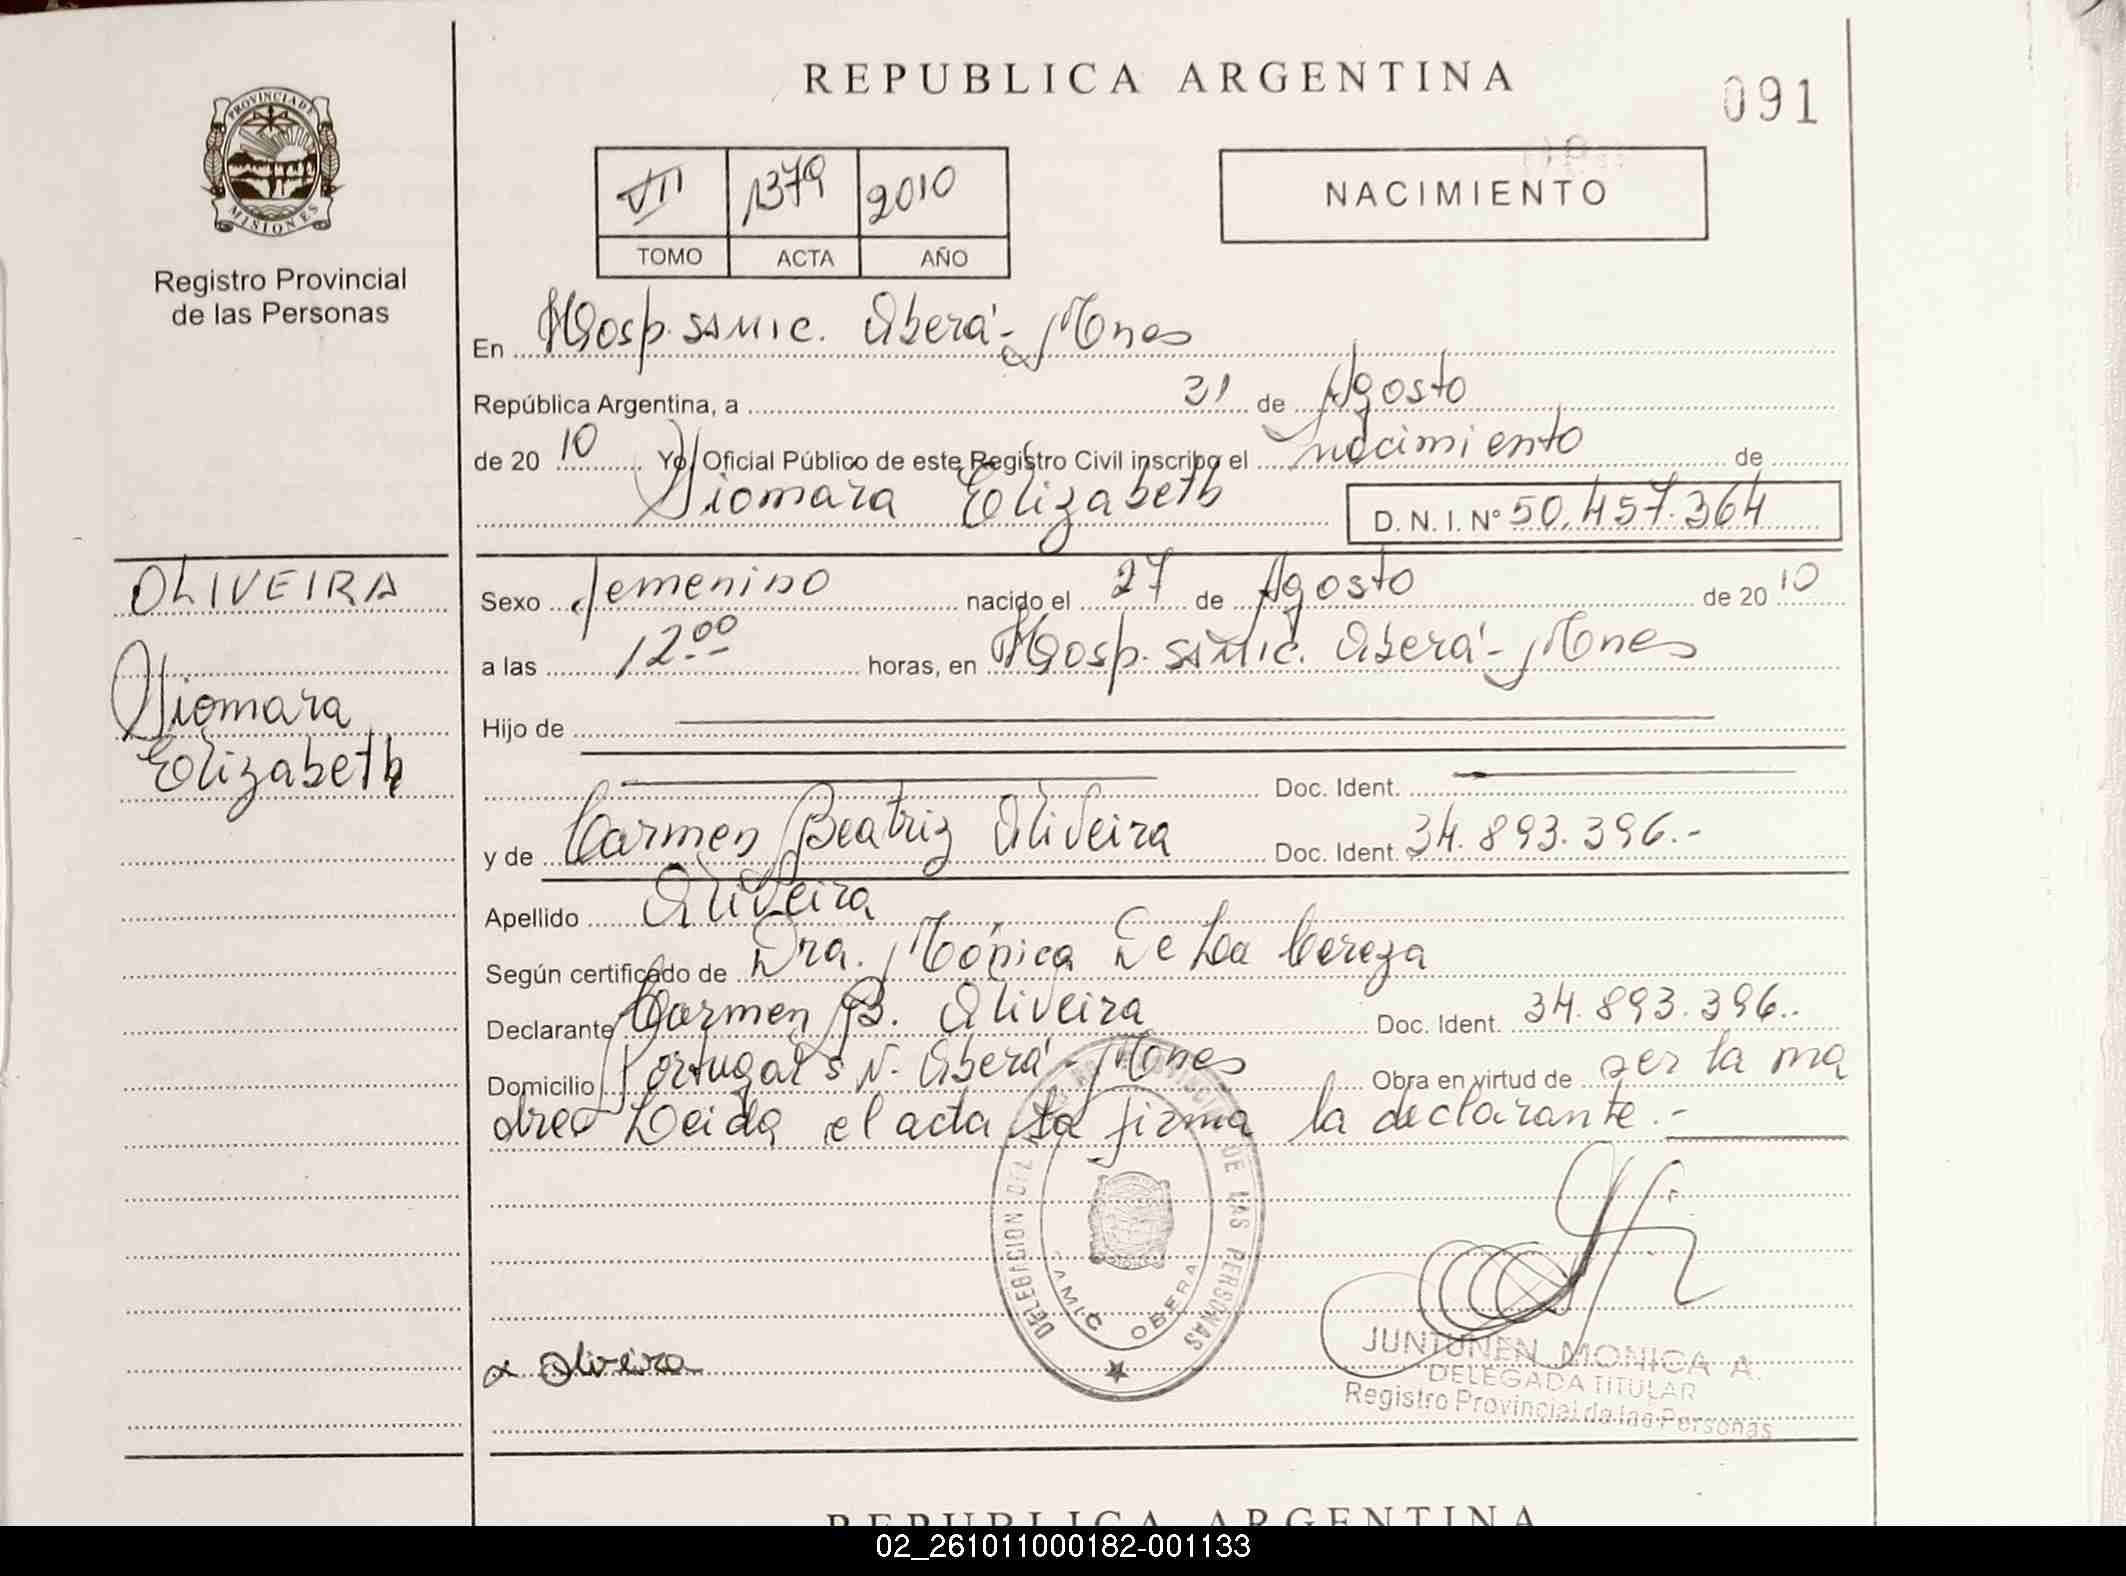 REPUBLICA ARGENTINA
091
PROVINCIA DE
MISIONES
Registro Provincial
de las Personas
VII 1379 2010
TOMO ACTA AÑO
NACIMIENTO
En Hosp. SAMIC. Oberá - Mnes
República Argentina, a 31 de Agosto
de 2010 Yo, Oficial Público de este Registro Civil inscribo el nacimiento de
Xiomara Elizabeth D. N. I. Nº 50.457.364
OLIVEIRA
Xiomara
Elizabeth
Sexo femenino nacido el 27 de Agosto de 2010
a las 12.00 horas, en Hosp. SAMIC. Oberá - Mnes
Hijo de
Doc. Ident.
y de Carmen Beatriz Oliveira Doc. Ident. 34.893.396.-
Apellido Oliveira
Según certificado de Dra. Mónica De La Cereza
Declarante Carmen B. Oliveira Doc. Ident. 34.893.396..
Domicilio Portugal S N. Oberá - Mnes Obra en virtud de ser la ma
dre Leida el acta la firma la declarante.-
DELEGACION DEL REGISTRO PROVINCIAL DE LAS PERSONAS
SAMIC OBERA
x Oliveira
JUNTUNEN MONICA A.
DELEGADA TITULAR
Registro Provincial de las Personas
REPUBLICA ARGENTINA
02_261011000182-001133